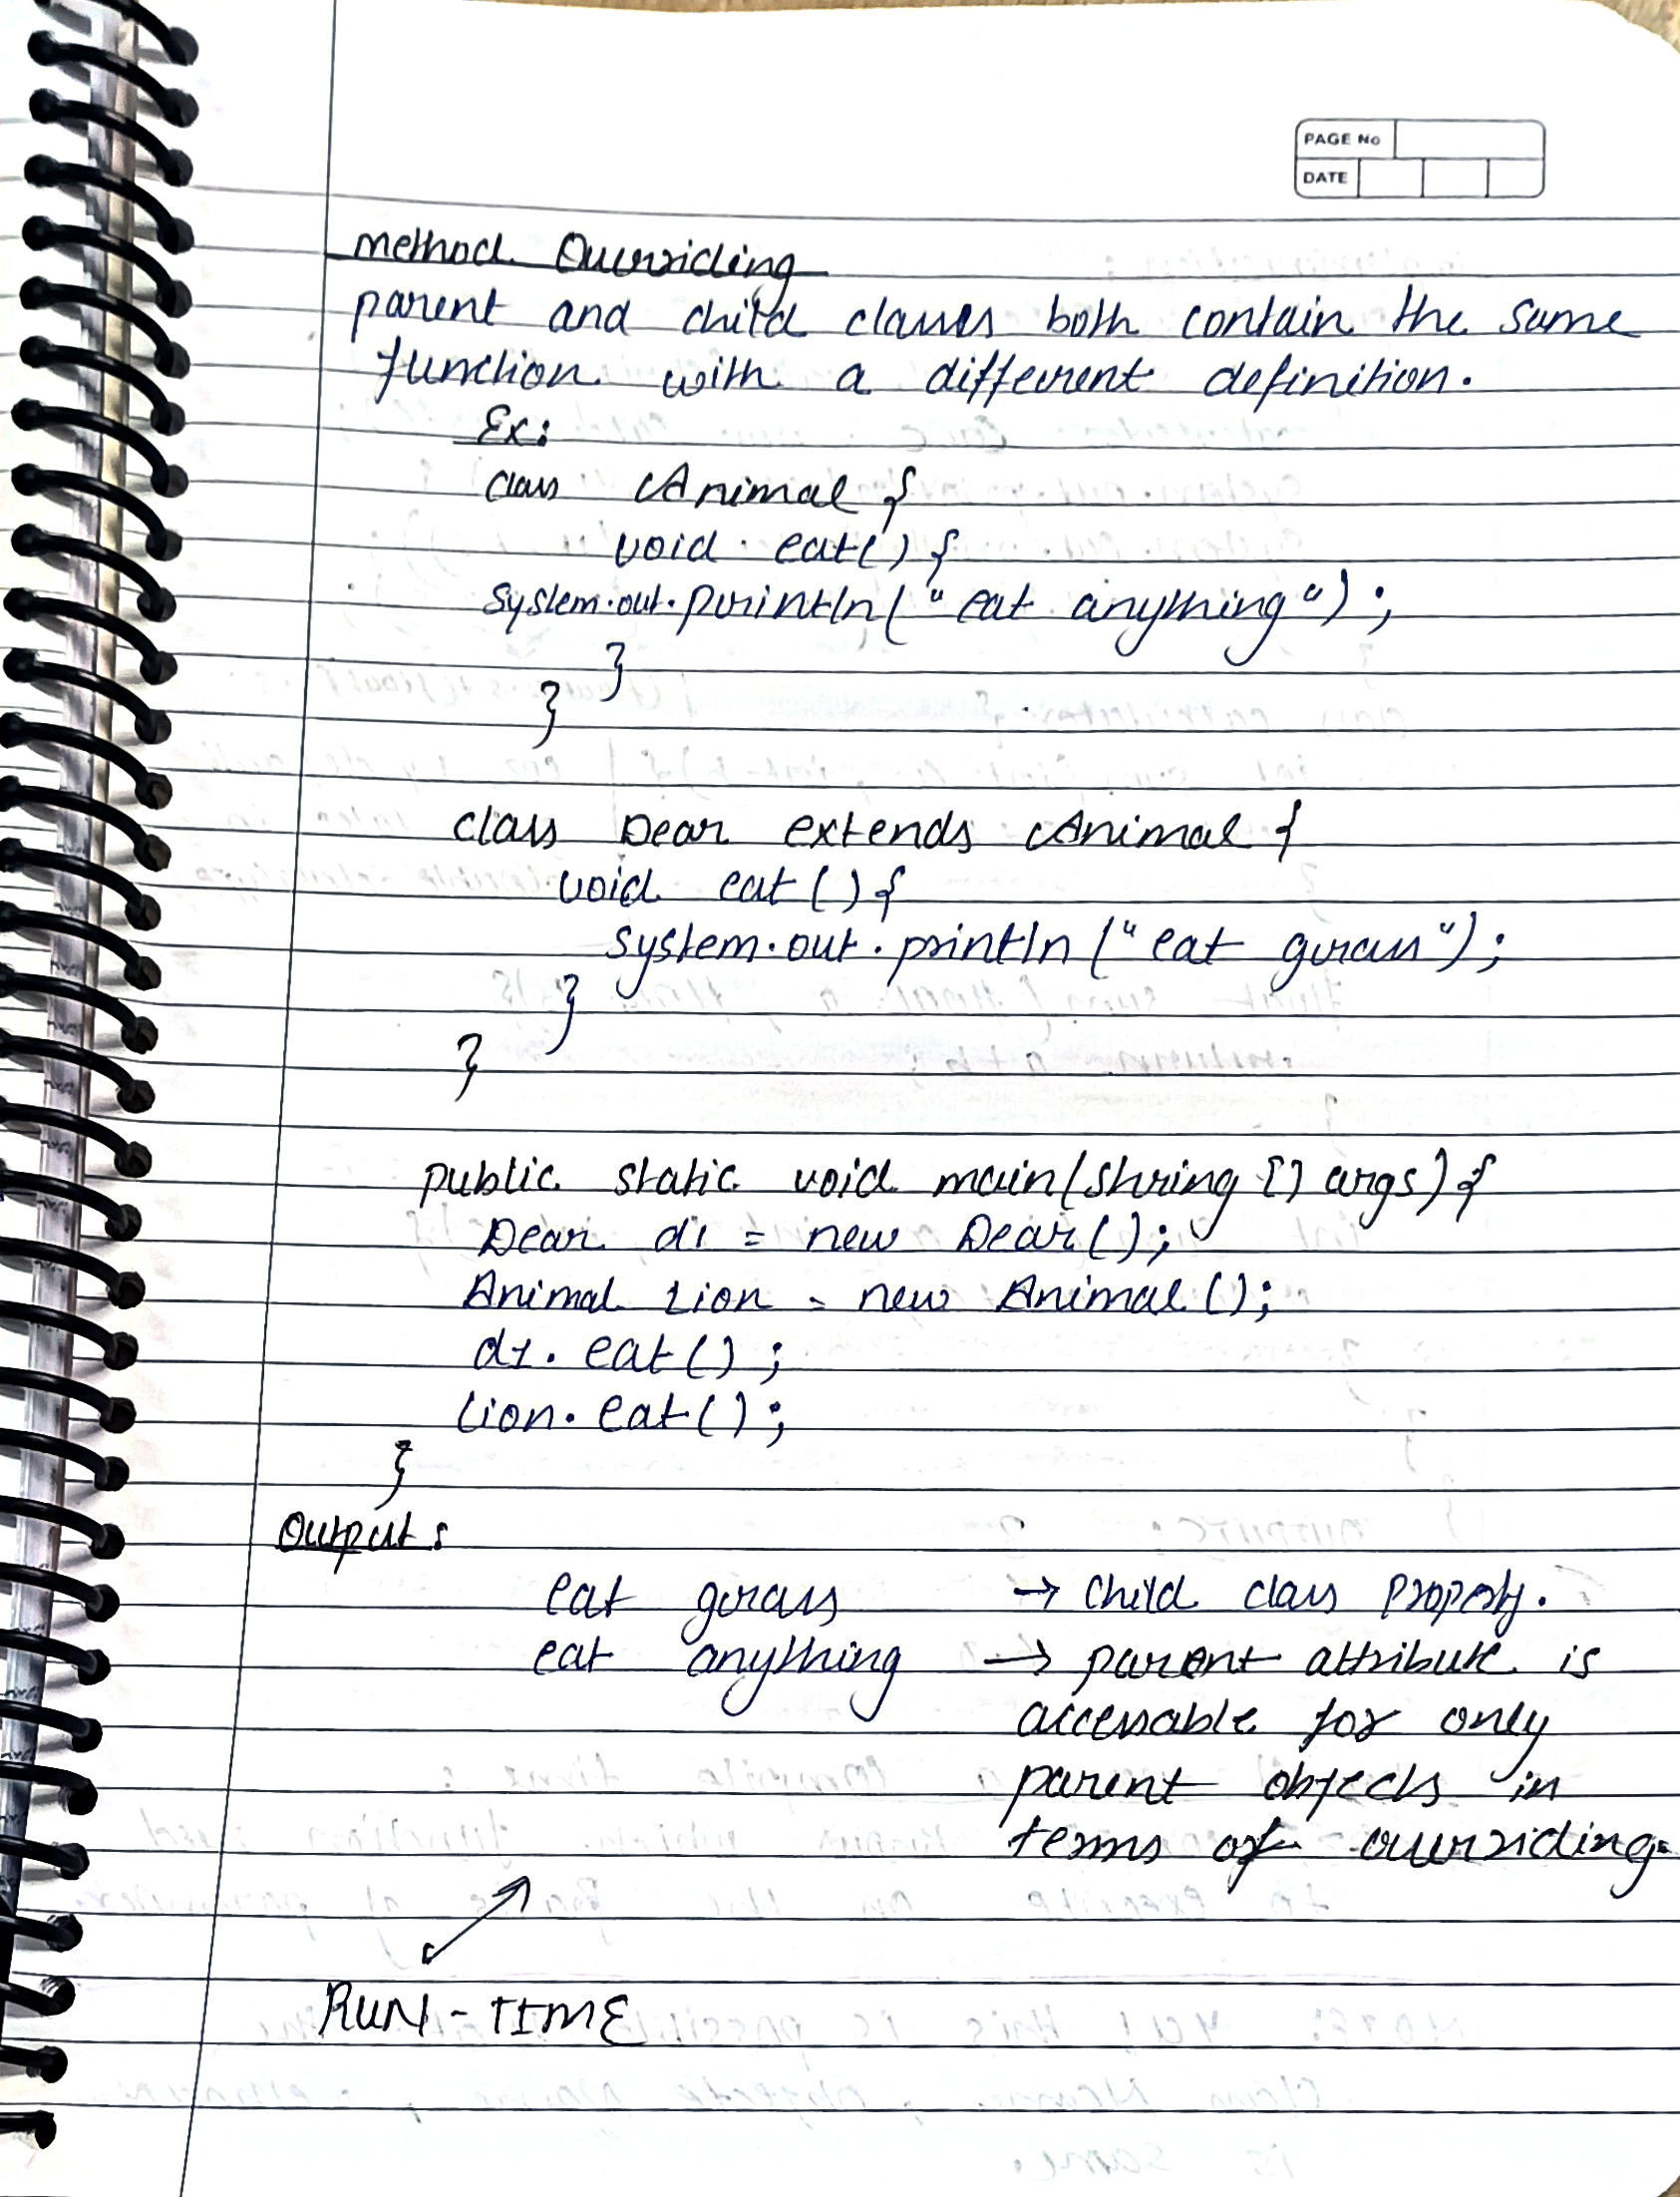 PAGE No
DATE
method Overriding
parent and child classes both contain the same
function with a different definition.
Ex:
class Animal {
void eat() {
system.out.println("eat anything");
}
}
class Dear extends Animal {
void eat() {
system.out.println("eat grass");
}
}
public static void main(string [] args) {
Dear d1 = new Dear();
Animal Lion = new Animal();
d1.eat();
lion.eat();
}
Output:
eat grass → child class property.
eat anything → parent attribute is
accessable for only
parent objects in
terms of overriding.
RUN-TIME